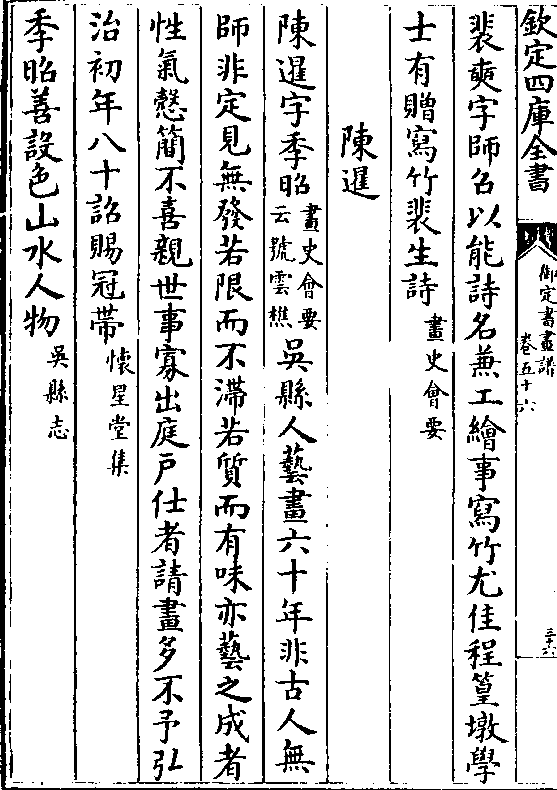 欽定四庫全書
御定書畫譜
卷五十六
三十六
裴奭字師召以能詩名兼工繪事寫竹尤佳程篁墩學
士有贈寫竹裴生詩畫史會要
陳暹
陳暹字季昭畫史會要云號雲樵吳縣人藝畫六十年非古人無
師非定見無發若限而不滯若質而有味亦藝之成者
性氣慤簡不喜親世事寡出庭戶仕者請畫多不予弘
治初年八十詔賜冠帶懷星堂集
季昭善設色山水人物吳縣志